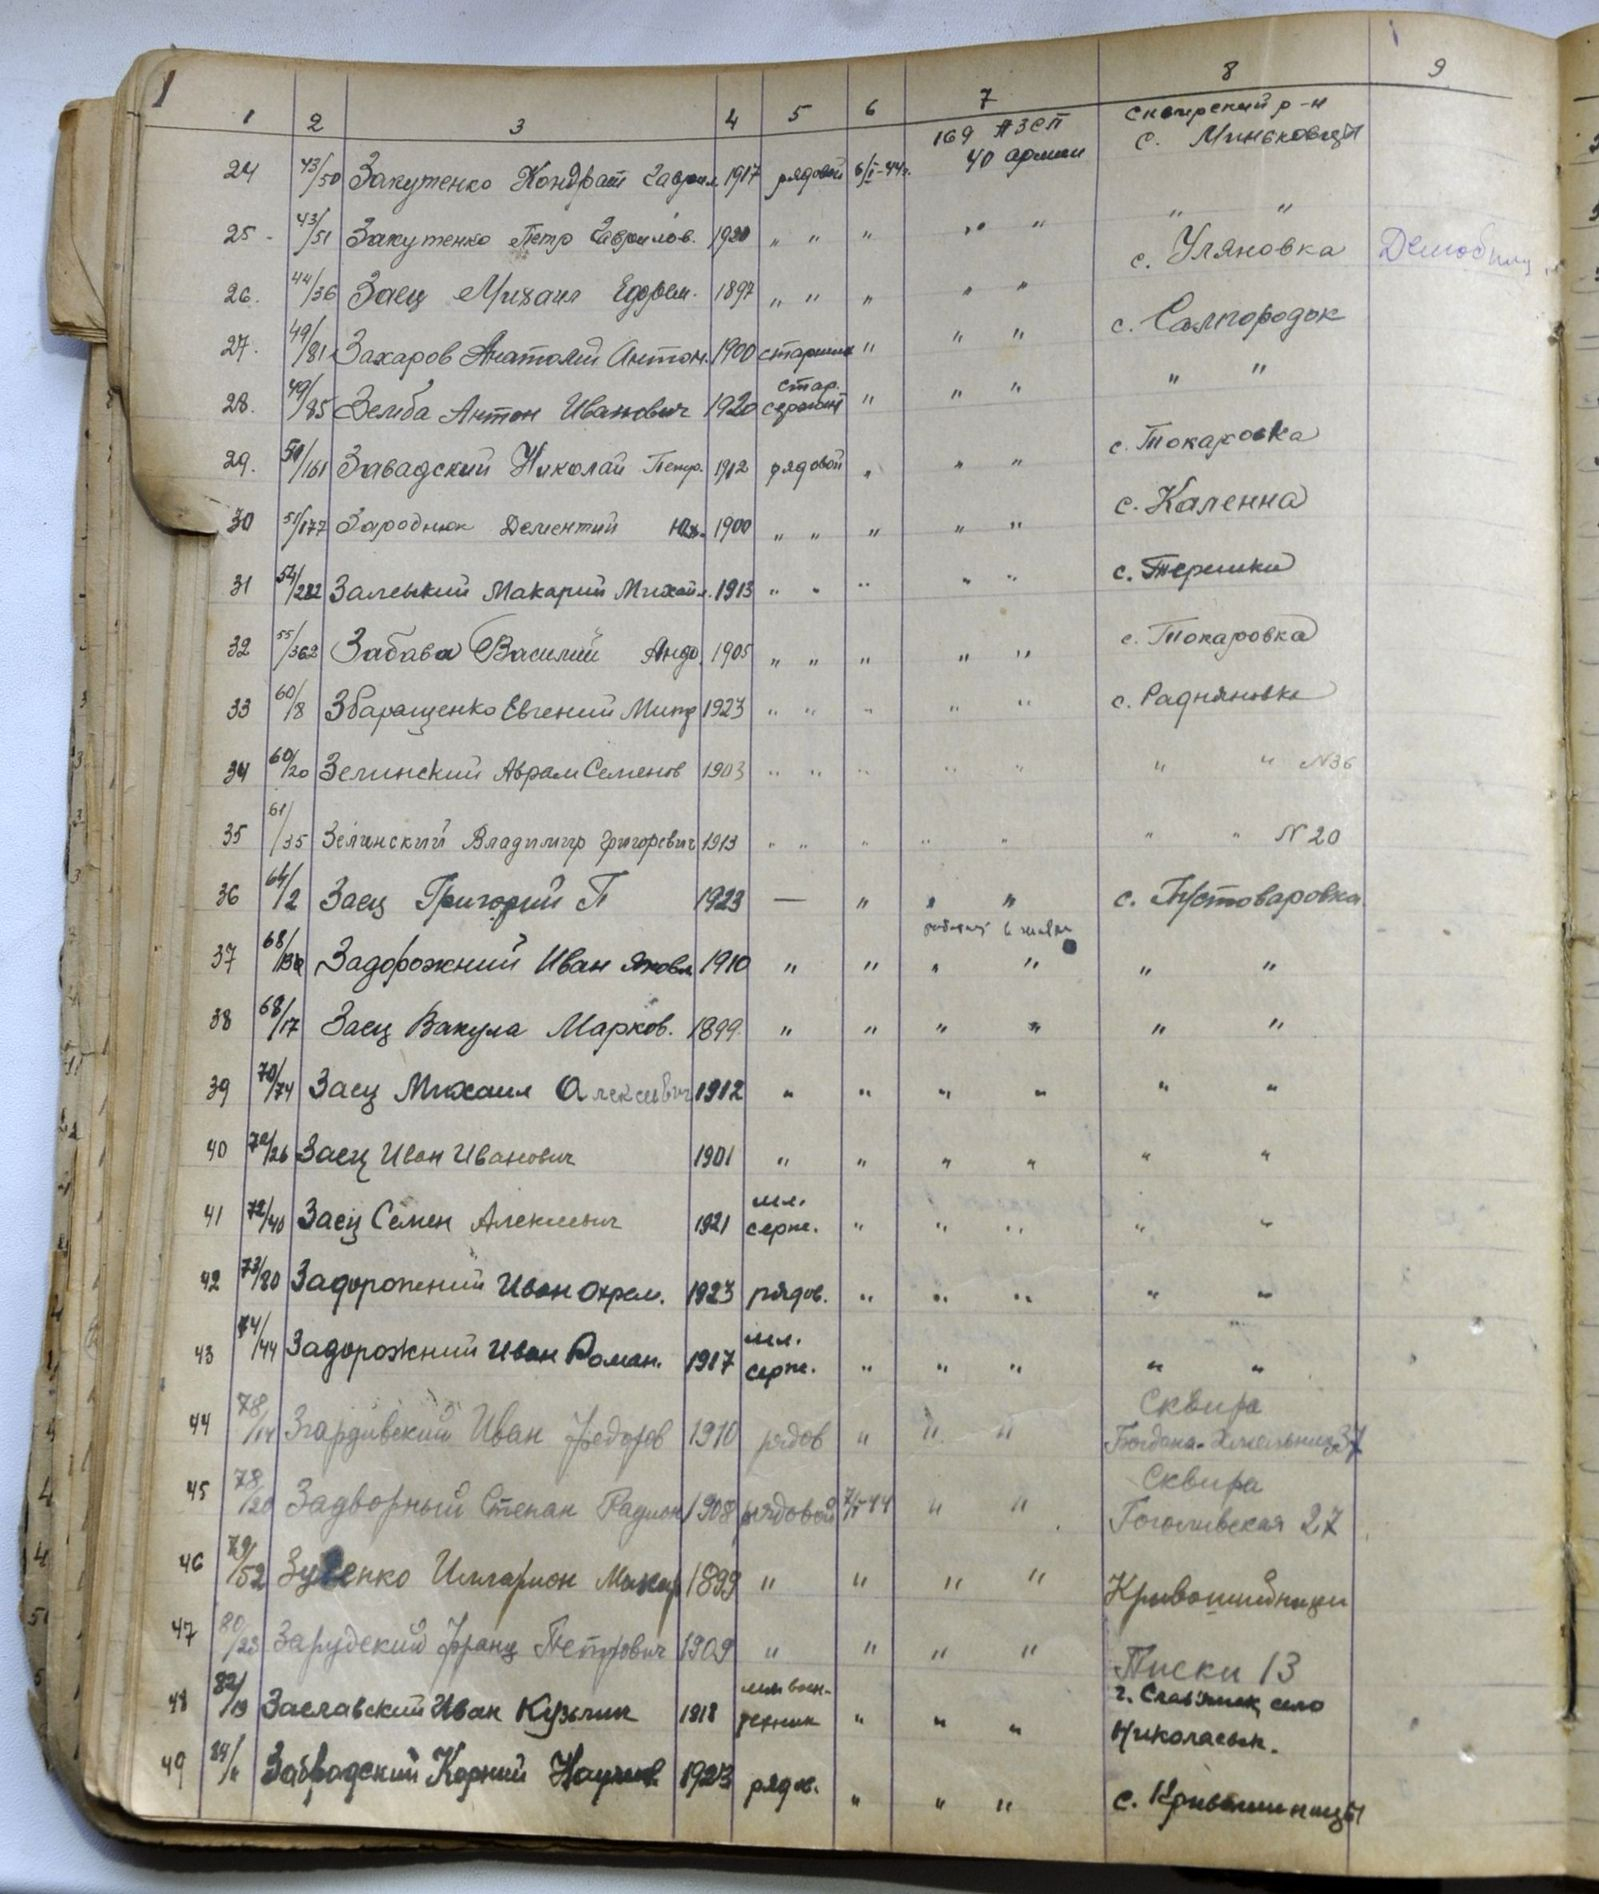 1 2 3 4 5 6 7 8 9
24 43/50 Закутенко Кондрат Гаврил. 1917 рядовой 6/I-44г. 169 АЗСП 40 армии Сквирский р-н с. Миньковцы
25 - 43/51 Закутенко Петр Гаврилов. 1920 " " " " " " "
26. 44/36 Заец Михаил Ефрем. 1897 " " " " " с. Уляновка
27. 49/81 Захаров Анатолий Антон. 1900 старшина " " " с. Самгородок
28. 49/85 Земба Антон Иванович 1920 стар. сержант " " " " "
29. 51/161 Завадский Николай Петр. 1912 рядовой " " " с. Токаровка
30 51/177 Зароднюк Дементий 1900 " " " " " с. Каленна
31 54/282 Залеький Макарий Михайл. 1913 " " " " " с. Терешки
32 55/362 Забава Василий Андр. 1905 " " " " " с. Токаровка
33 60/8 Збаращенко Евгений Митр 1923 " " " " " с. Радняновка
34 60/20 Зелинский Аврам Семенов 1903 " " " " " " " N36
35 61/35 Зелинский Владимир Григоревич 1913 " " " " " " " N 20
36 64/2 Заец Григорий П 1923 — " " " с. Пустоваровка
37 68/ Задорожний Иван Яковл 1910 " " " " " "
38 68/17 Заец Вакула Марков. 1899 " " " " " "
39 70/74 Заец Михаил Алексиевич 1912 " " " " " "
40 72/26 Заец Иван Иванович 1901 " " " " " "
41 72/40 Заец Семен Алексиевич 1921 мл. серж. " " " " "
42 73/80 Задорожний Иван Охрем. 1923 рядов. " " " " "
43 74/44 Задорожний Иван Роман. 1917 мл. серж. " " " " "
44 78/14 Згардивский Иван Федоров 1910 рядов " " " Сквира Богдана-Хмельниц 37
45 78/20 Задворный Степан Радион 1908 рядовой 7/I-44 " " Сквира Гоголивская 27
46 79/52 Зуенко Илларион Макар 1899 " " " " Кривошийнци
47 80/23 Зарудский Франц Петрович 1909 " " " " Писки 13
48 82/19 Заславский Иван Кузьмич 1918 мл воен-техник " " " г. Славянск село Николаевк.
49 84/ Завадский Корний Наумов. 1923 рядов. " " " с. Кривошиинцы
Демобилиз